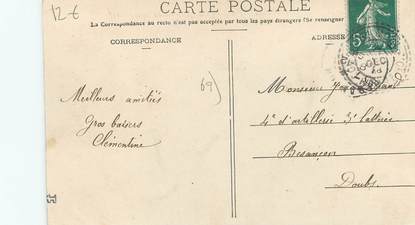 12-€
CARTE POSTALE
La Correspondance au recto n'est pas acceptée par tous les pays étrangers (Se renseigner
CORRESPONDANCE
ADRESSE
5c
69)
Meilleurs amitiés
Gros baisers
Clémentine
Monsieur
4e d'artillerie 3e batterie
Besançon
Doubs.